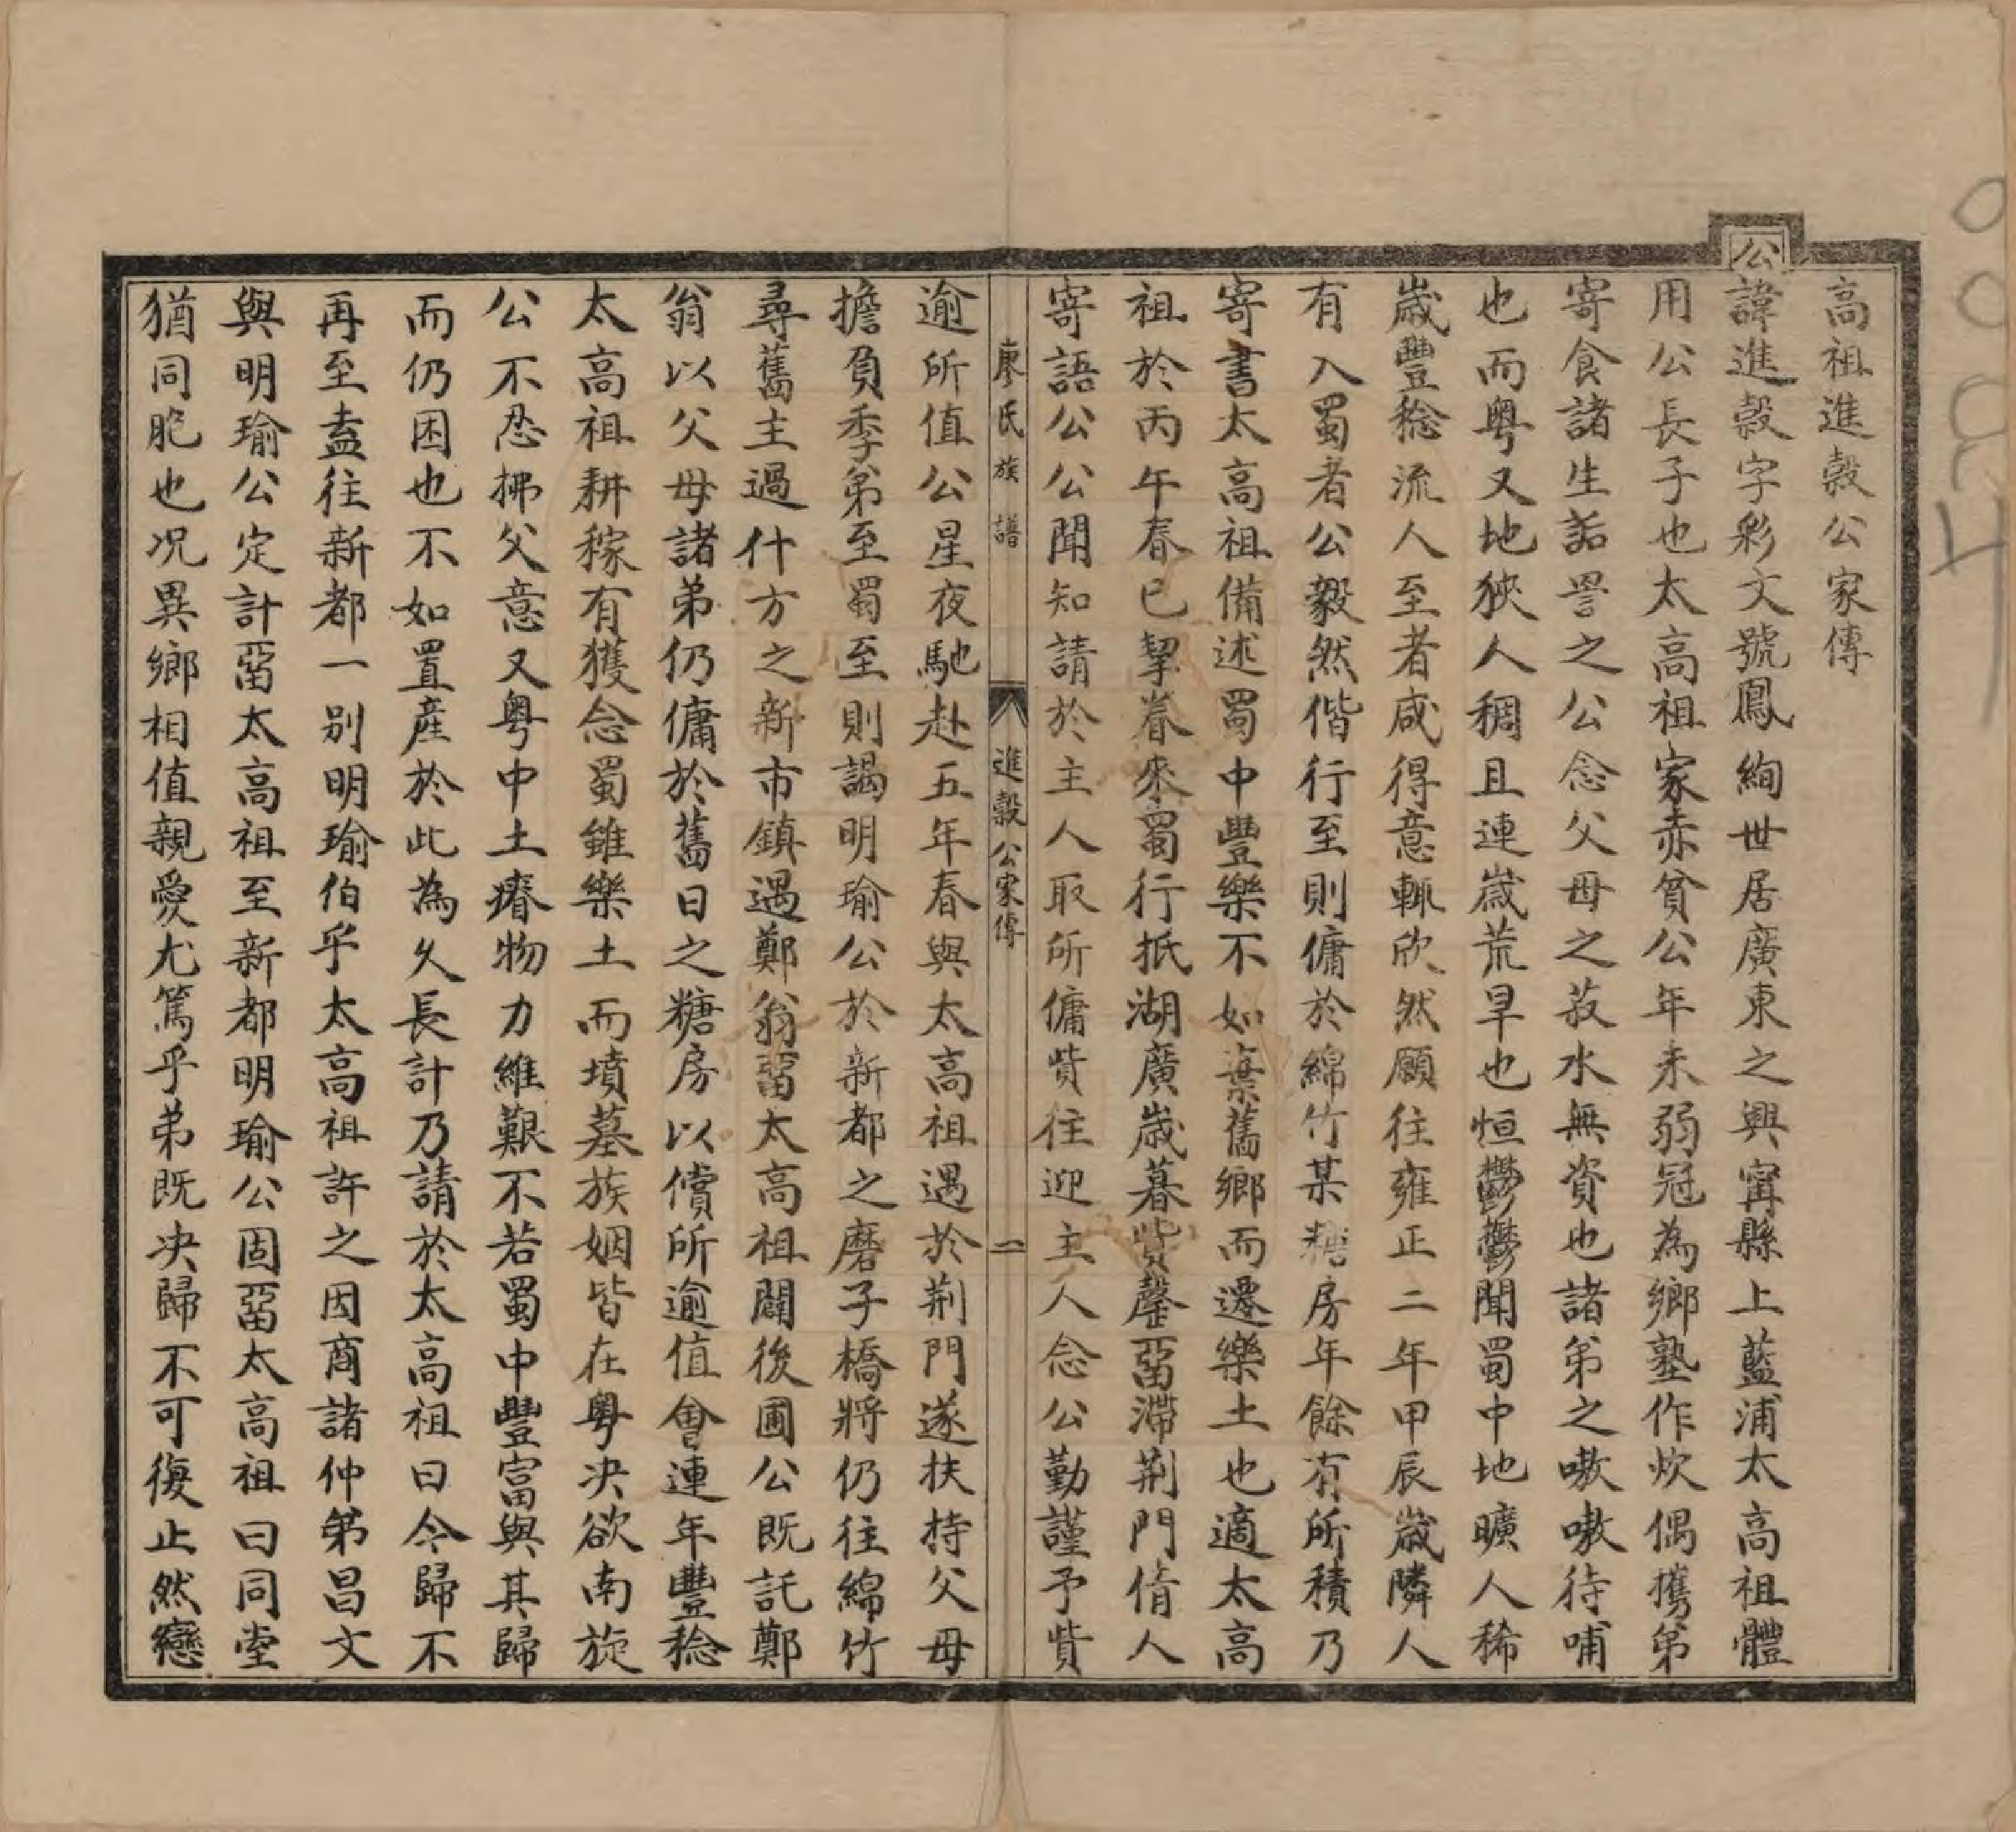 高祖進穀公家傳
公諱進穀字彩文號鳳絢世居廣東之興甯縣上藍浦太高祖體
用公長子也太高祖家赤貧公年未弱冠為鄉塾作炊偶攜弟
寄食諸生詬詈之公念父母之菽水無資也諸弟之嗷嗷待哺
也而粵又地狹人稠且連歲荒旱也恒鬱鬱聞蜀中地曠人稀
歲豐稔流人至者咸得意輒欣然願往雍正二年甲辰歲隣人
有入蜀者公毅然偕行至則傭於綿竹某糖房年餘有所積乃
寄書太高祖備述蜀中豐樂不如棄舊鄉而遷樂土也適太高
祖於丙午春已挈眷來蜀行抵湖廣歲暮貲罄畱滯荆門倩人
寄語公公聞知請於主人取所傭貲往迎主人念公勤謹予貲
廖氏族譜
進穀公家傳
二
逾所值公星夜馳赴五年春與太高祖遇於荆門遂扶持父母
擔負季弟至蜀至則謁明瑜公於新都之磨子橋將仍往綿竹
尋舊主過什方之新市鎮遇鄭翁畱太高祖闢後圃公既託鄭
翁以父母諸弟仍傭於舊日之糖房以償所逾值會連年豐稔
太高祖耕稼有獲念蜀雖樂土而墳墓族姻皆在粵決欲南旋
公不忍拂父意又粵中土瘠物力維艱不若蜀中豐富與其歸
而仍困也不如置產於此為久長計乃請於太高祖曰今歸不
再至盍往新都一別明瑜伯乎太高祖許之因商諸仲弟昌文
與明瑜公定計畱太高祖至新都明瑜公固畱太高祖曰同堂
猶同胞也况異鄉相值親愛尤篤乎弟既決歸不可復止然戀